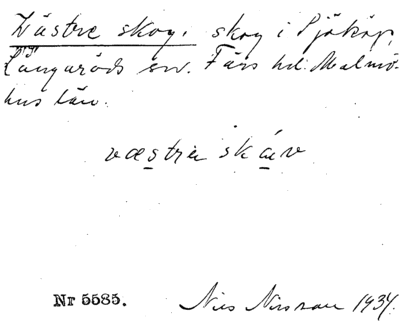 Västre skog, skog i Sjököp,
Långaröds sn. Färs hd. Malmö-
hus län.
væstrɐ skáv
Nr 5585.
Nils Nilsson 1934.